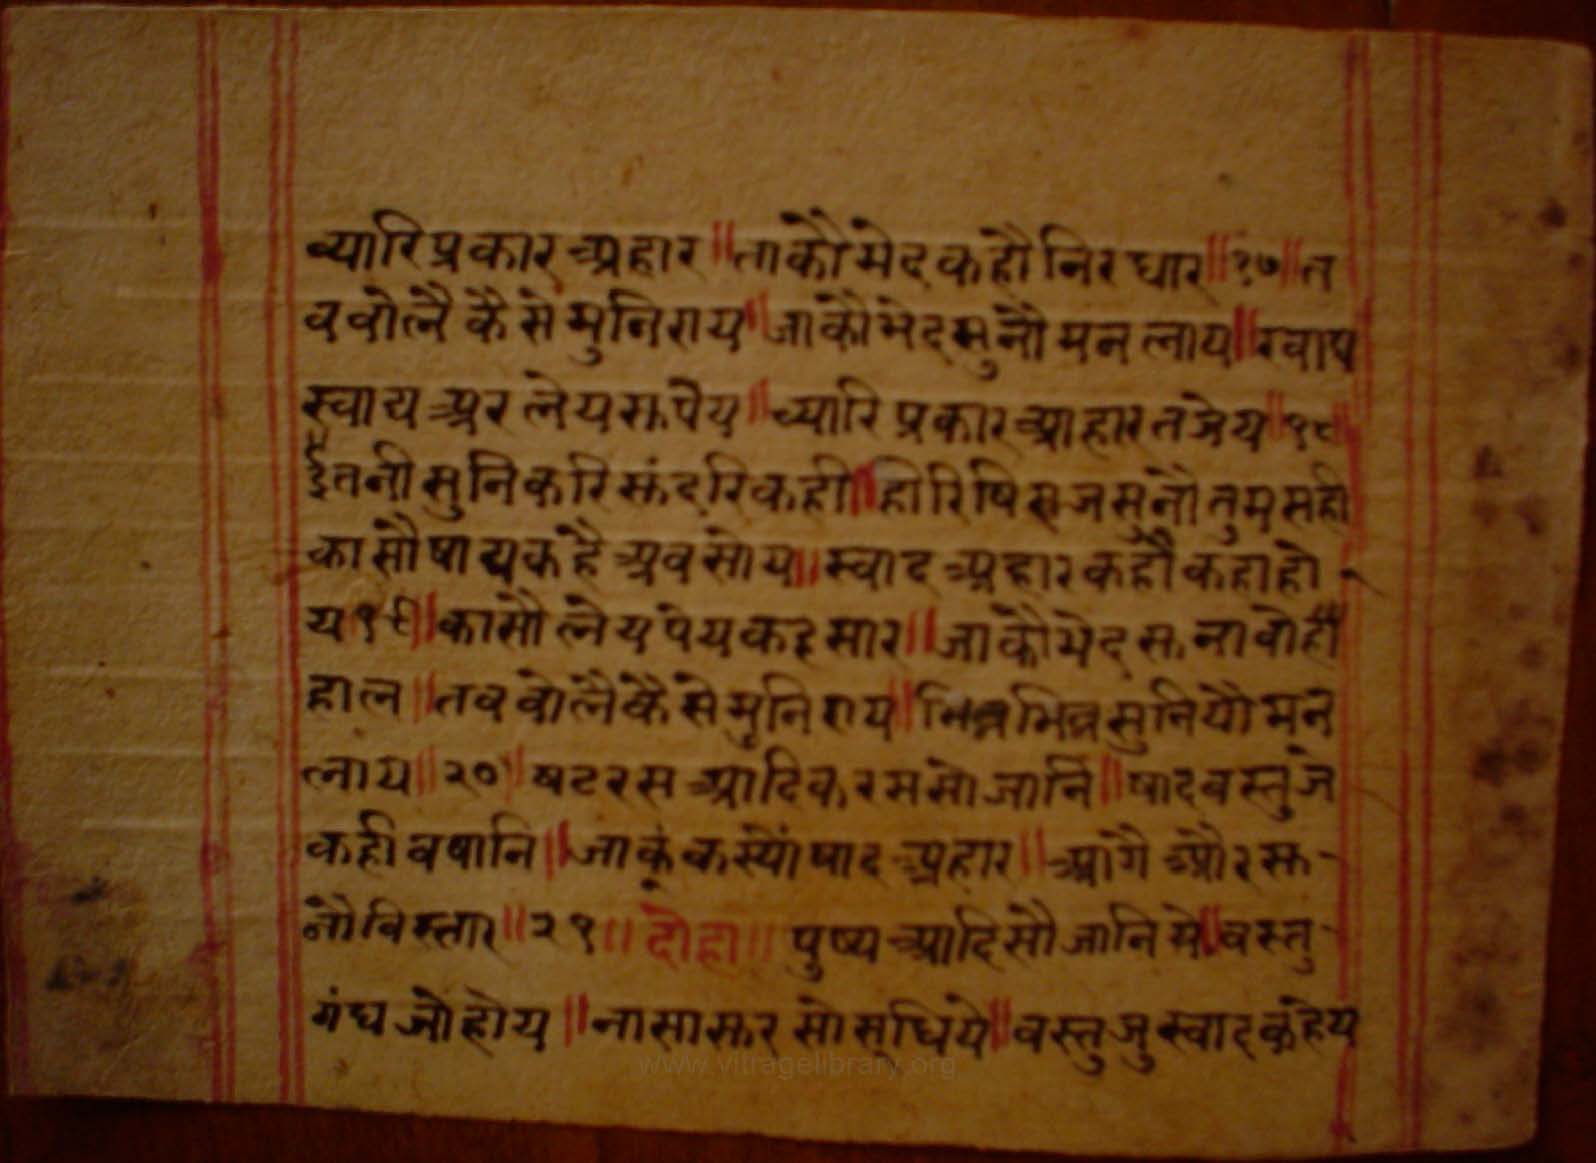 च्यारि प्रकार अहार ॥ ताकौ भेद कहौ निरधार ॥ १७ ॥ त
व वोलै कैसे मुनिराय ॥ जाकौ भेद सुनौ मन लाय ॥ षाय
स्वाद्य अर लेय रूपेय ॥ च्यारि प्रकार आहार तजेय ॥ १८ ॥
ईतनी सुनि करि सुंदरि कही ॥ हो रिषिराज सुनौ तुम सही
कासौ षाद्य कहै अव सोय ॥ स्वाद अहार कहौ कहा हो
य १९ ॥ कासौ लेय पेय कह सार ॥ जाकौ भेद सुनावो ही
हाल ॥ तव वोलै कैसे मुनिराय ॥ भिन्न भिन्न सुनियौ मन
लाय ॥ २० ॥ षटरस आदिक रस सो जानि ॥ षाद वस्तु जे
कही वषानि ॥ जाकूं कस्यौं षाद अहार ॥ आगै और सु
नौ विस्तार ॥ २१ ॥ दोहा ॥ पुष्प आदि सौ जानि मे ॥ वस्तु
गंध जो होय ॥ नासा कर सो सूधिये ॥ वस्तु जु स्वाद कहेय
www.vitragelibrary.org